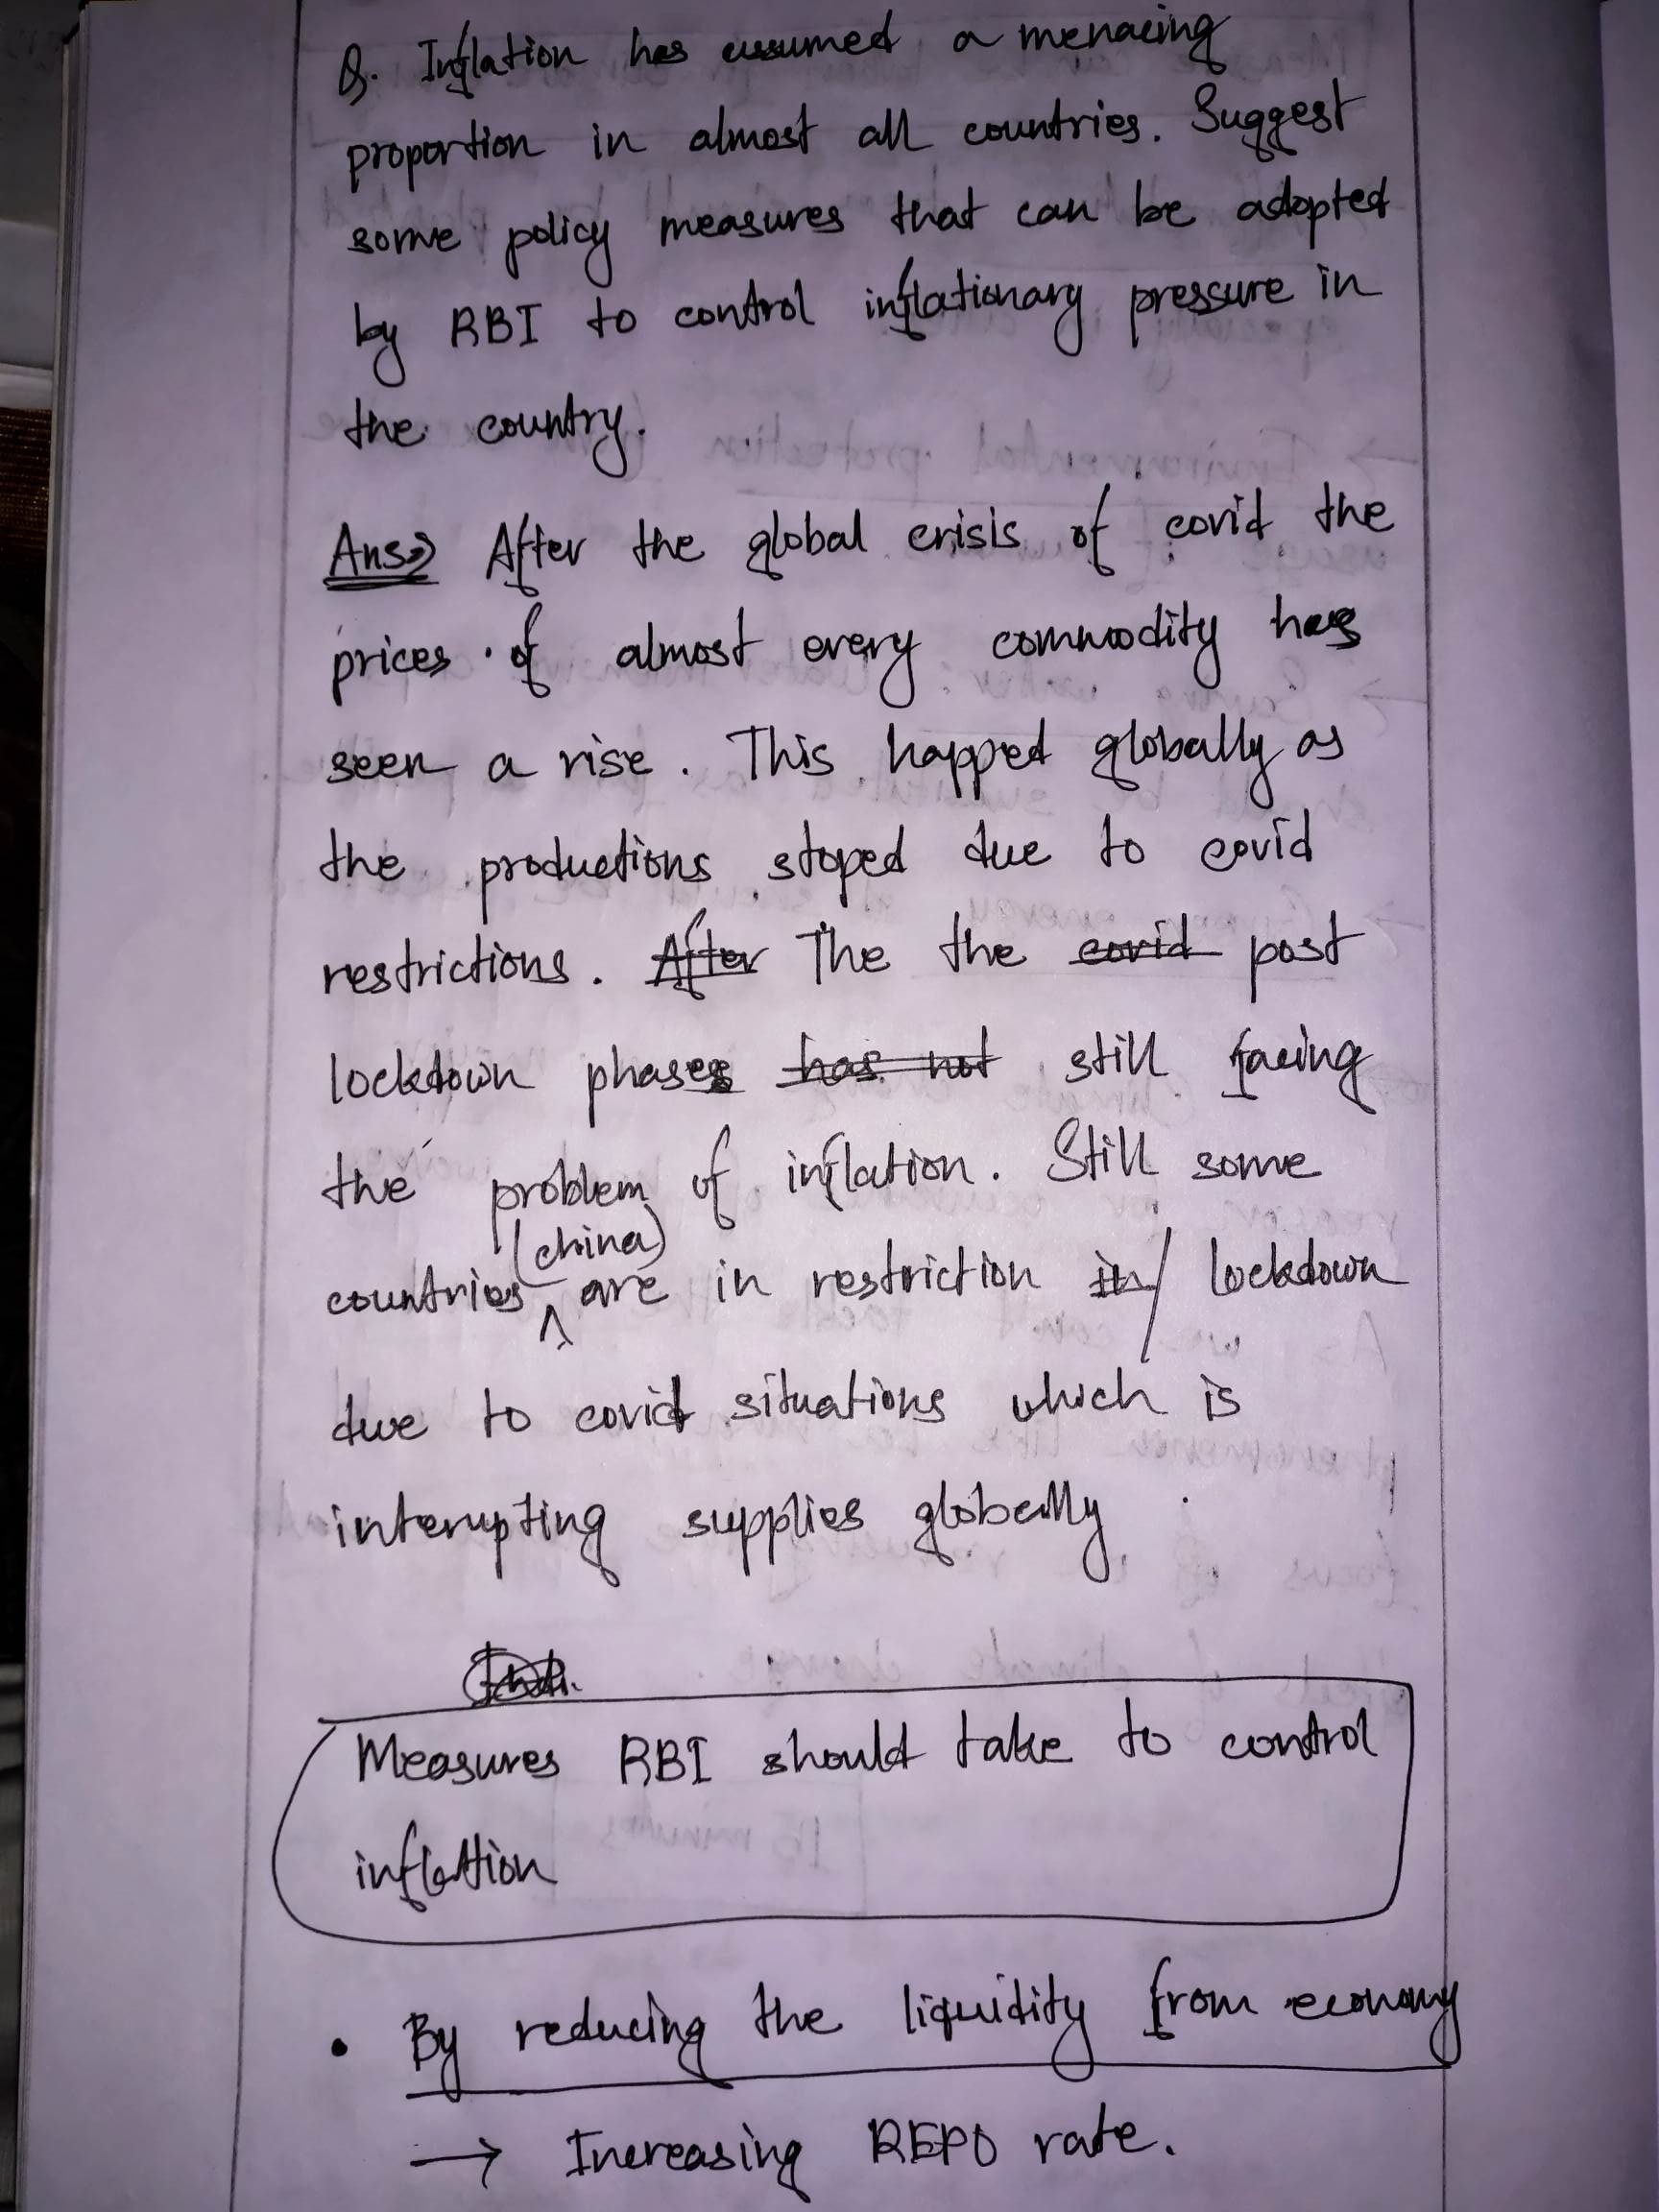 Q. Inflation has assumed a menacing
proportion in almost all countries. Suggest
some policy measures that can be adopted
by RBI to control inflationary pressure in
the country.
Ans⇒ After the global crisis of covid the
prices of almost every commodity has
seen a rise. This happed globally as
the productions stoped due to covid
restrictions. After The the covid post
lockdown phases has not still facing
the problem of inflation. Still some
countries (china) are in restriction in / lockdown
due to covid situations which is
interupting supplies globally.
Measures RBI should take to control
inflation
• By reducing the liquidity from economy
→ Increasing REPO rate.